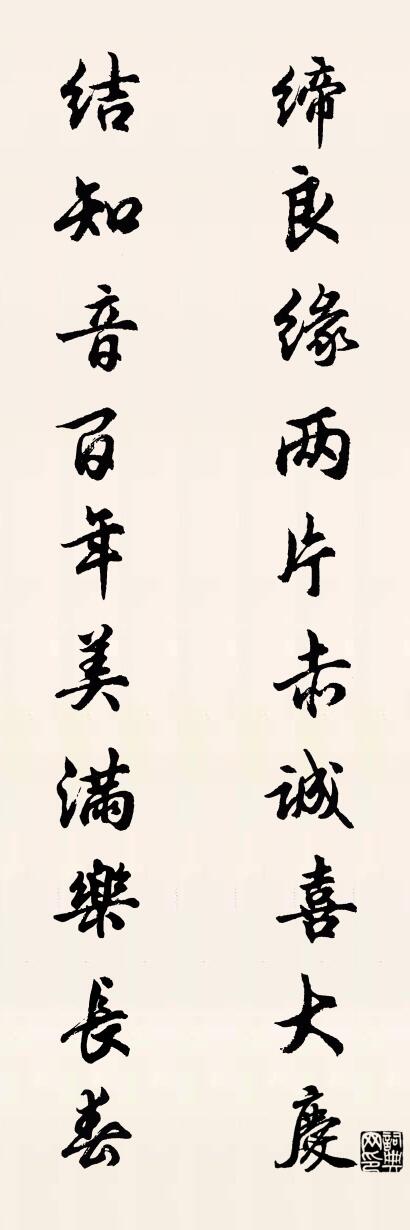 缔良缘两片赤诚喜大慶
结知音百年美满樂長春
詞典网印